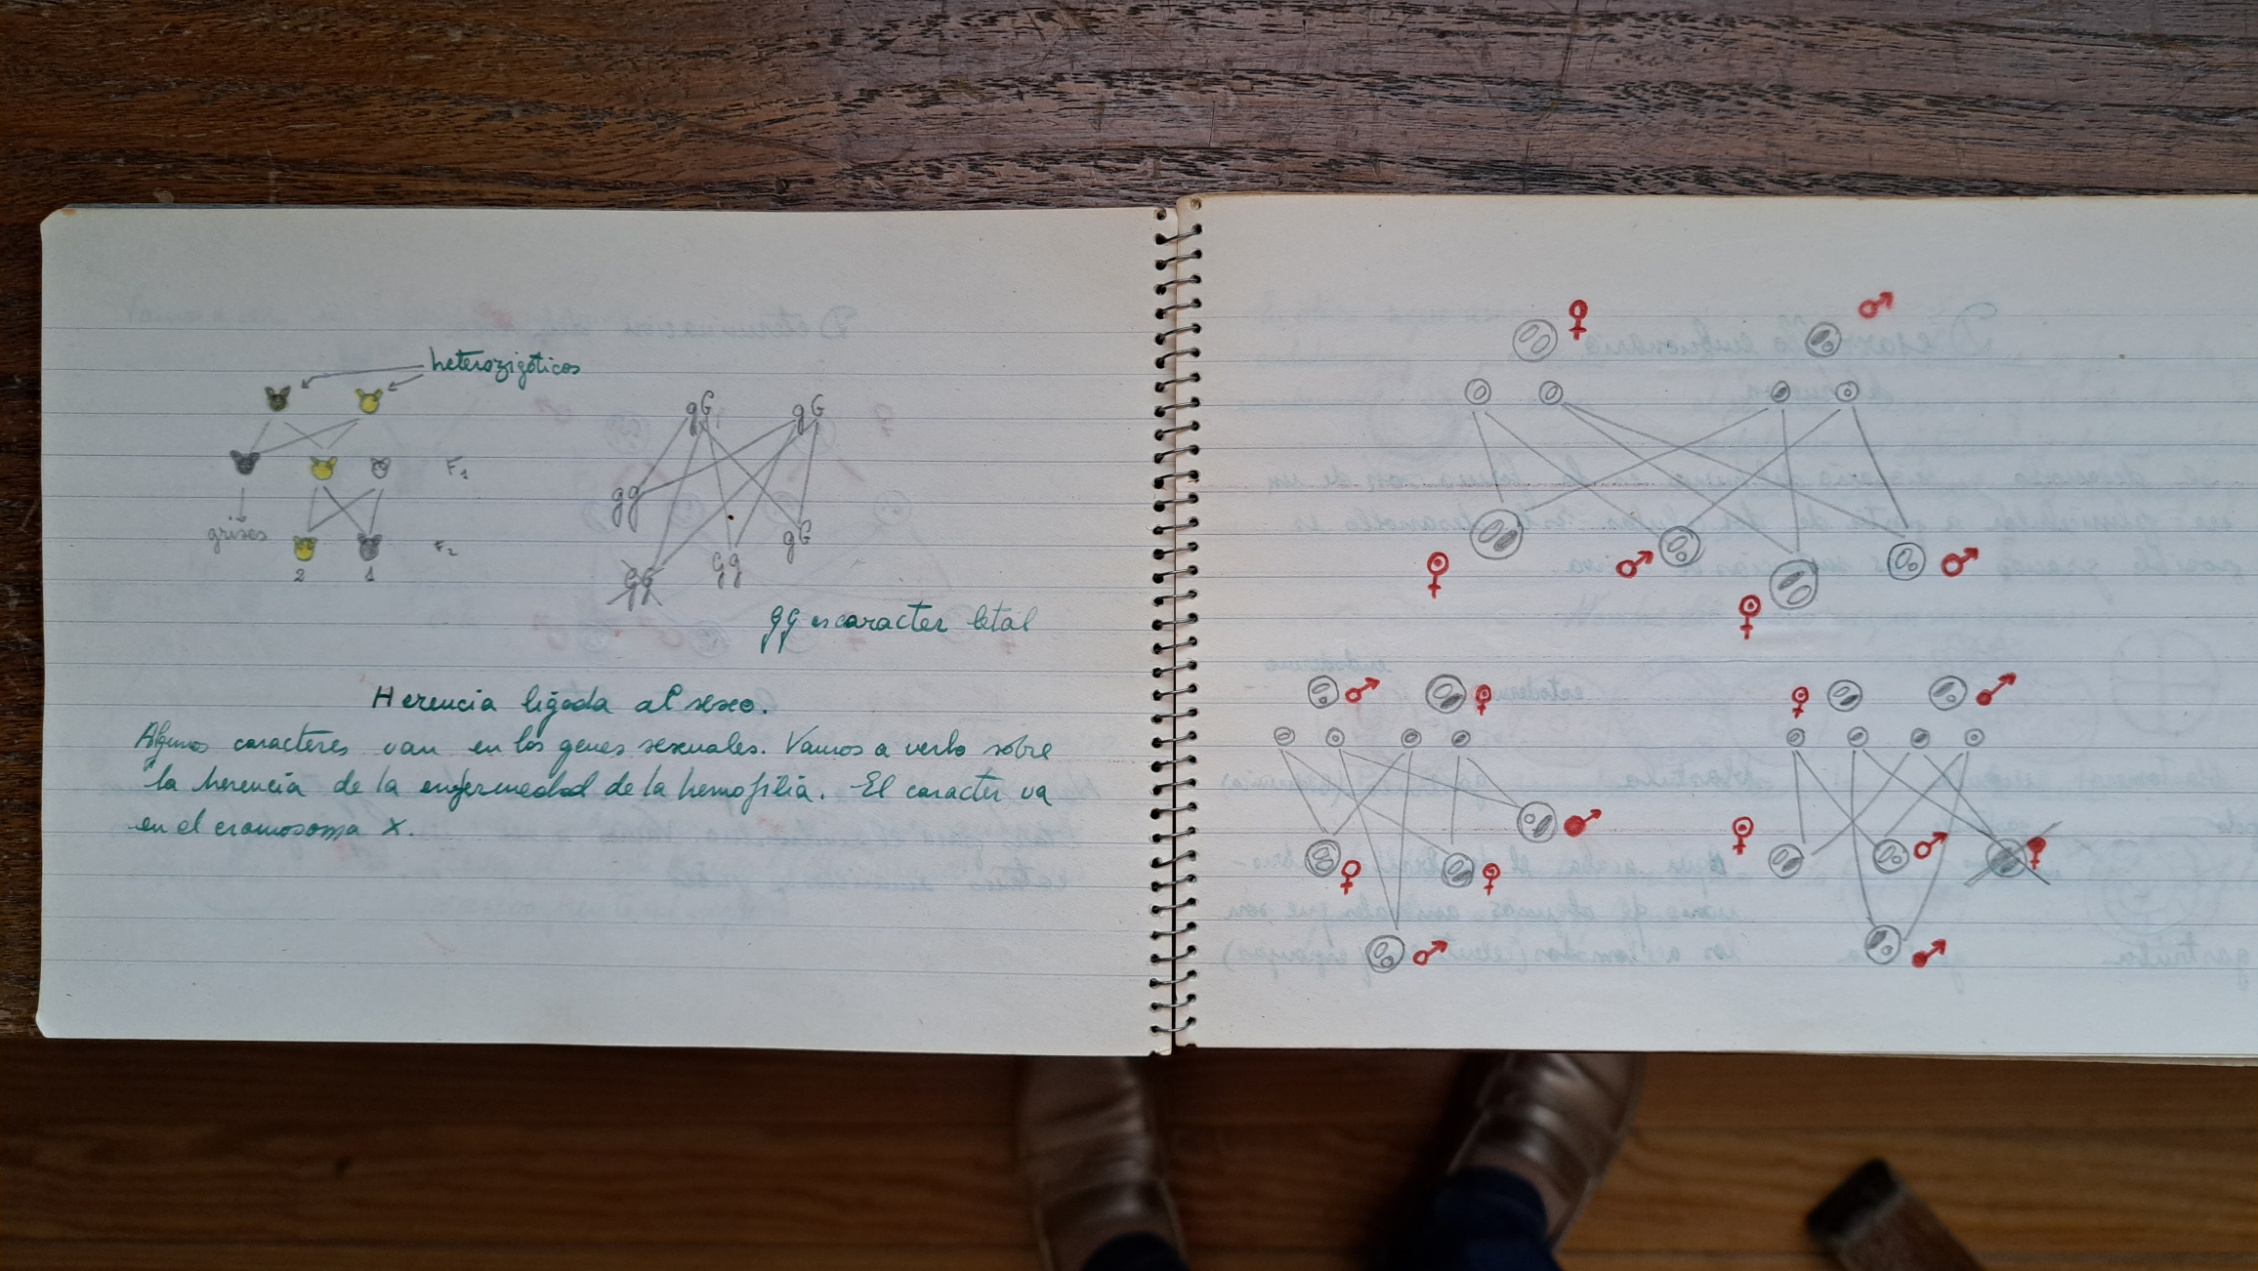 heterozigóticos
gG gG
F1
gg
grises
gG
Gg
F2
GG
2 1
gg es caracter letal
Herencia ligada al sexo.
Algunos caracteres van en los genes sexuales. Vamos a verlo sobre
la herencia de la enfermedad de la hemofilia. El caracter va
en el cromosoma X.
♀ ♂
♀ ♂ ♀ ♂
♂ ♀ ♀ ♂
♂
♀ ♂ ♀
♀ ♀
♂ ♂